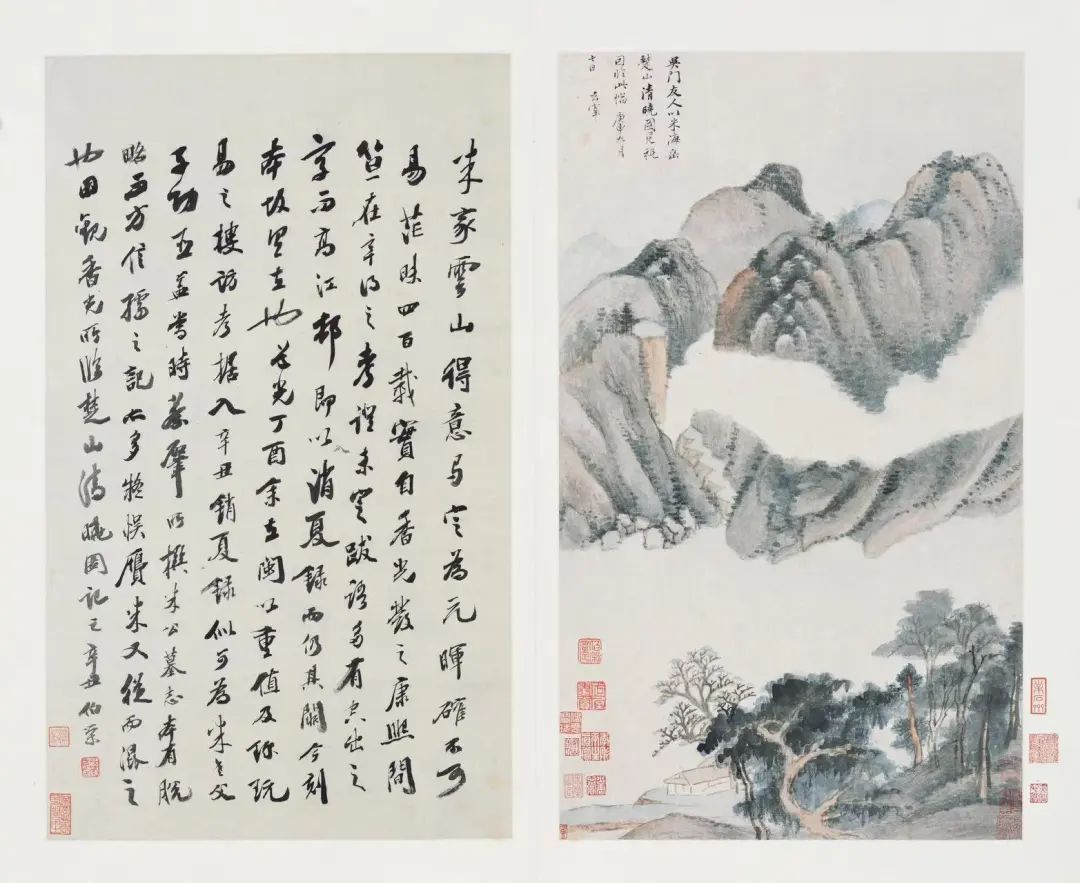 吳門友人以米海岳
楚山清曉圖見視
因臨此幅 庚申九月
七日 玄宰
米家雲山得意馬定為元暉確不可
易茫昧四百載實自香光發之康熙間
笪在辛得之考證未定跋語多有空出之
字而高江邨即以消夏錄而仍其闕今刻
本 在也道光丁酉余在閩以重值及珎玩
易之樓訪考據入辛丑銷夏錄似可為米老父
子功臣蓋當時蔡肇所撰米公墓志本有脫
略而方信孺之記亦多疑悞贋米又從而混之
也因觀香光所臨楚山清曉圖記之辛丑伯榮